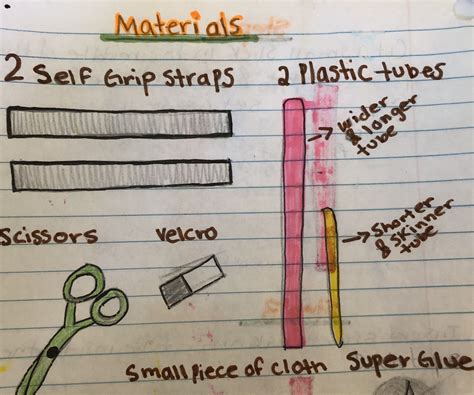 Materials
2 Self Grip Straps
2 Plastic tubes
wider
& longer
tube
shorter
& skinner
tube
Scissors
Velcro
Small piece of cloth
Super Glue